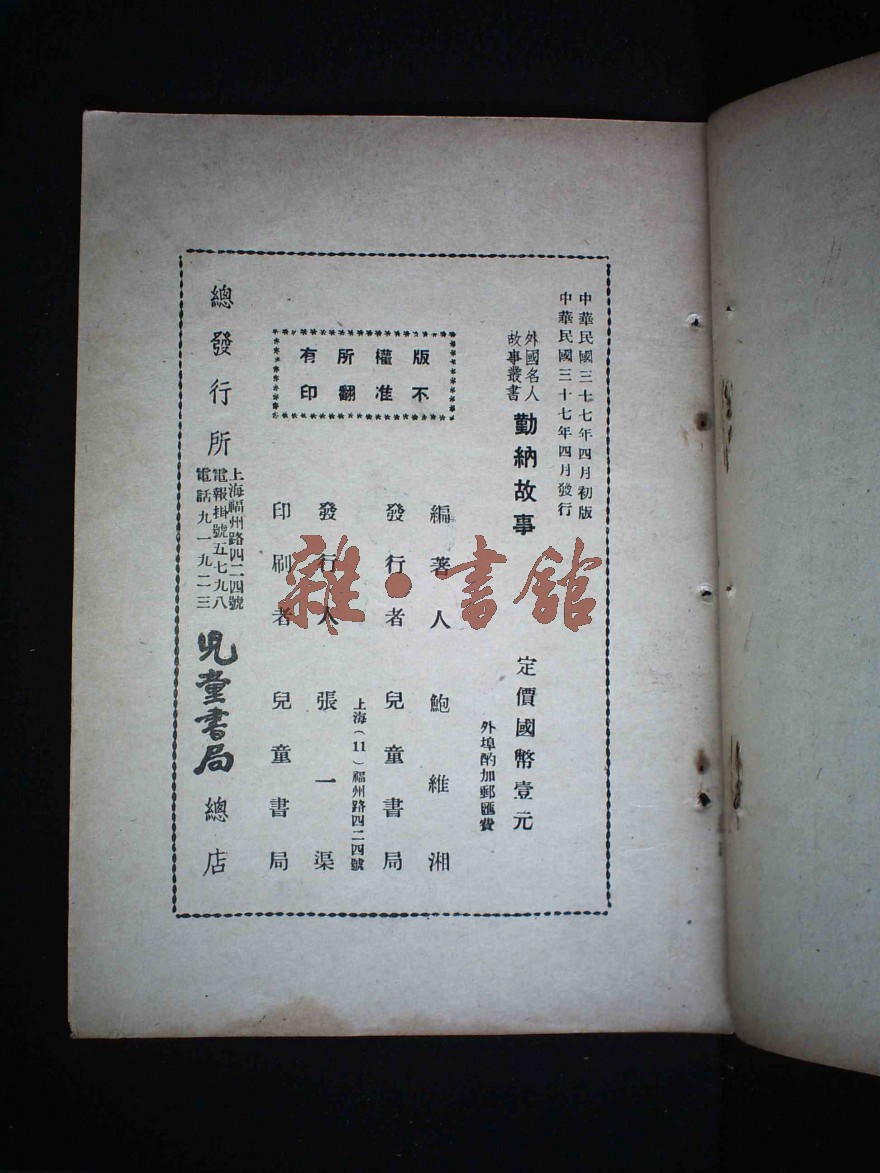 中華民國三十七年四月初版
中華民國三十七年四月發行
外國名人
故事叢書
勤納故事
定價國幣壹元
外埠酌加郵匯費
編著人 鮑維湘
發行者 兒童書局
上海（11）福州路四二四號
發行人 張一渠
印刷者 兒童書局
版權所有
不准翻印
總發行所
上海福州路四二四號
電報掛號五七九八
電話九一九二三
兒童書局
總店
雜·書館